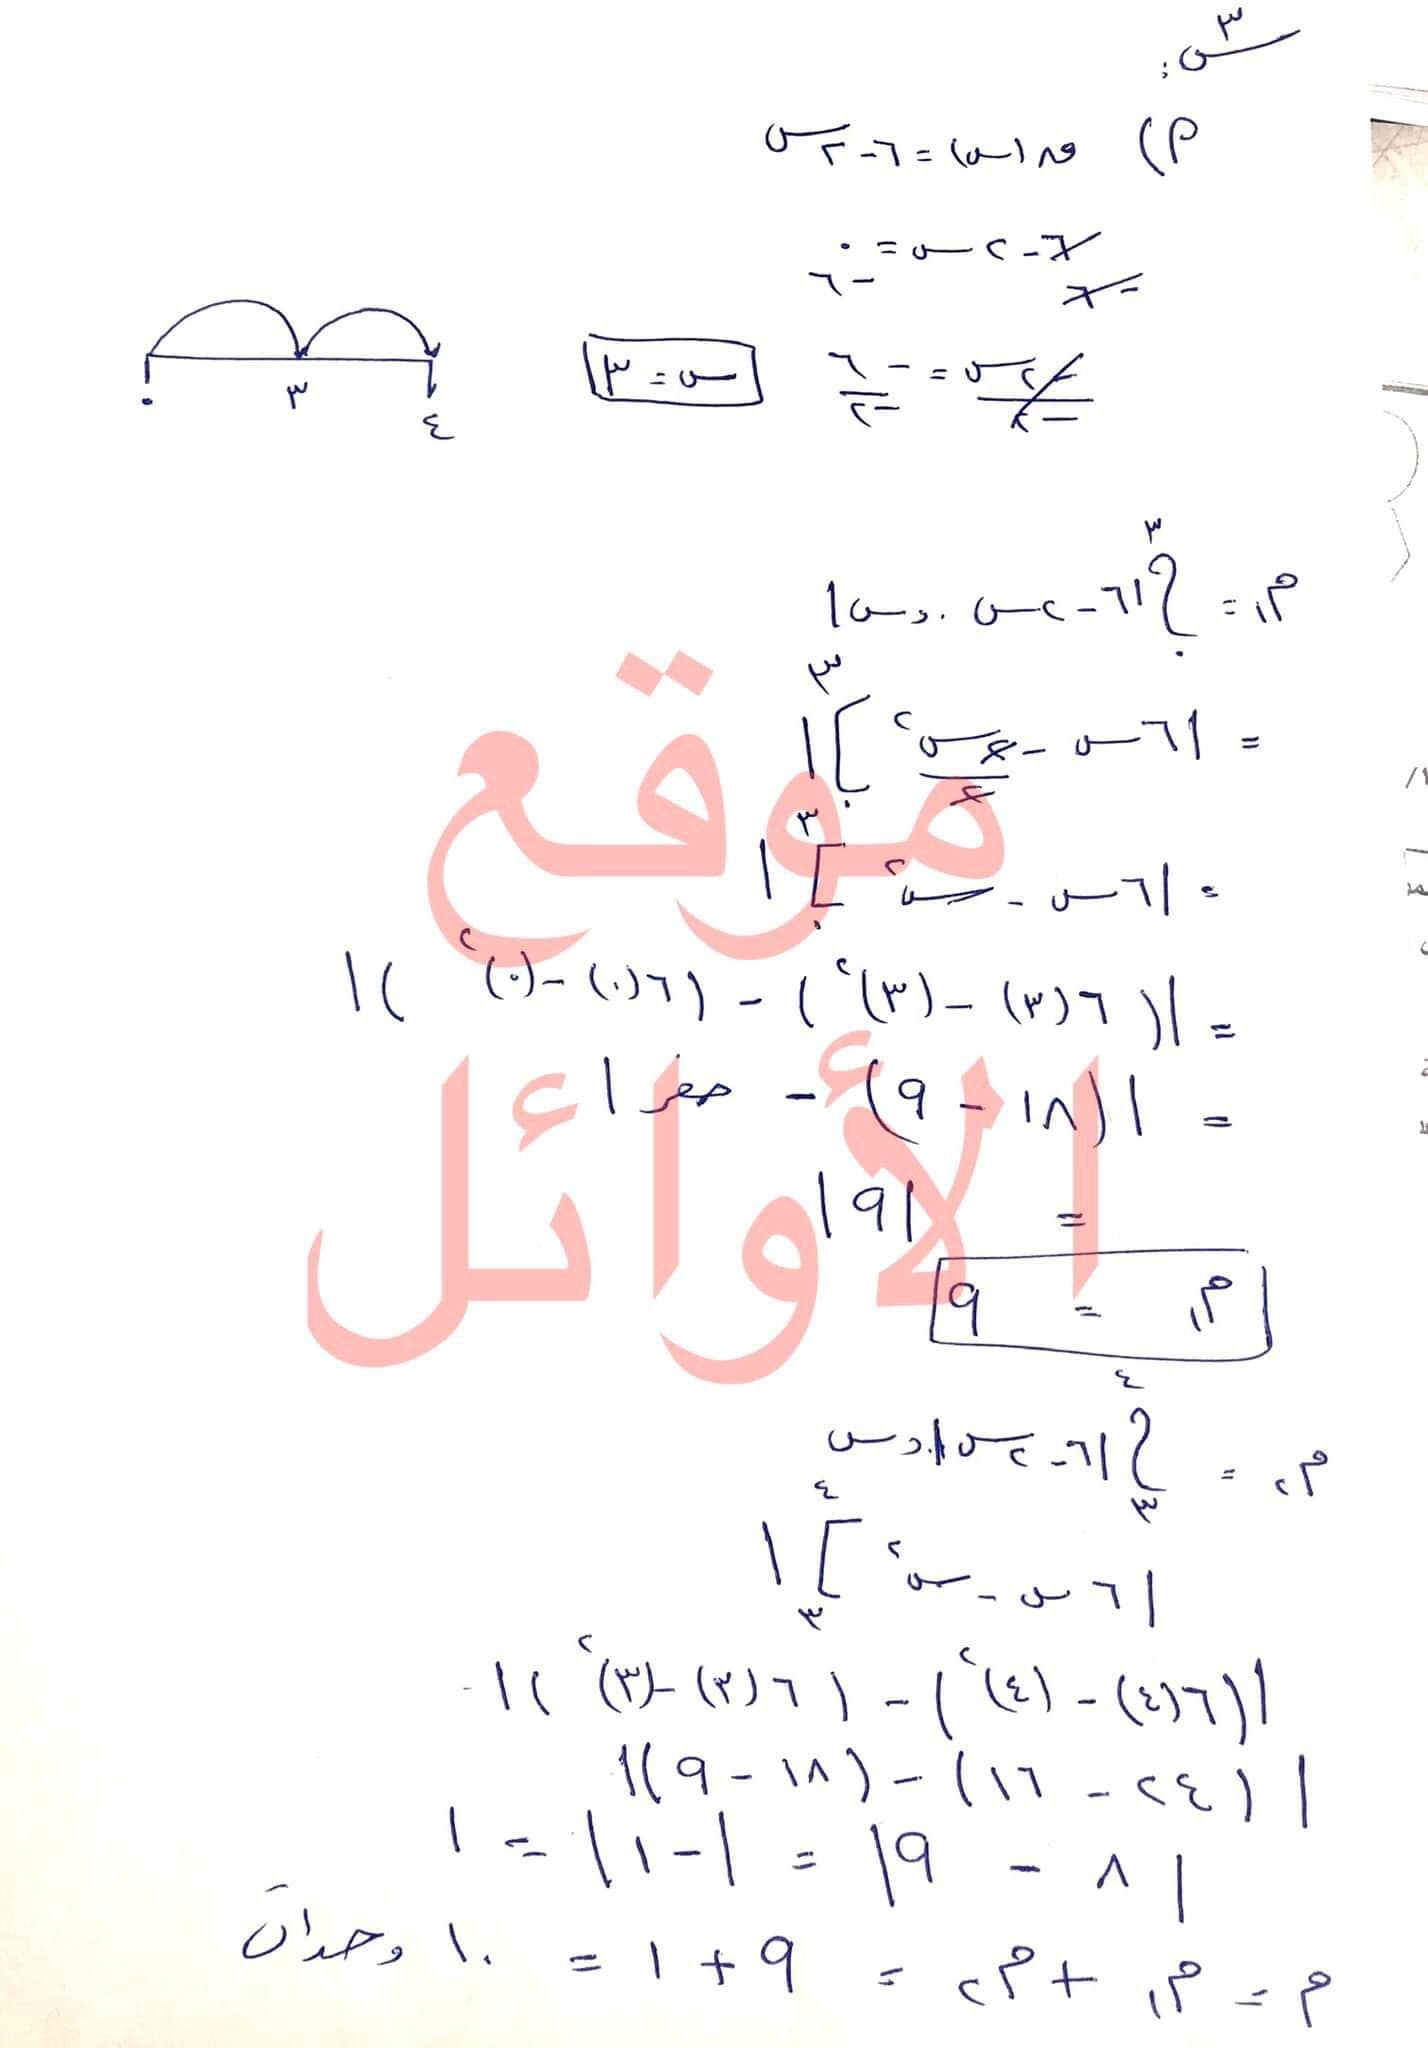 س٣:
م) ق(س) = ٦ - ٢س
٦ - ٢س = ٠
-٦ -٦
-٢س/-٢ = -٦/-٢
س = ٣
٠ ٣ ٤
م١ = ∫٠^٣ |٦ - ٢س . دس|
= |٦س - ٢س²/٢ ]٠^٣|
= |٦س - س² ]٠^٣|
= |(٦(٣) - (٣)²) - (٦(٠) - (٠)²)|
= |(١٨ - ٩) - صفر|
= |٩|
م١ = ٩
م٢ = ∫٣^٤ |٦ - ٢س| . دس
|٦س - س² ]٣^٤|
|(٦(٤) - (٤)²) - (٦(٣) - (٣)²)|
|(٢٤ - ١٦) - (١٨ - ٩)|
|٨ - ٩| = |-١| = ١
م = م١ + م٢ = ٩ + ١ = ١٠ وحدات
موقع
الأوائل